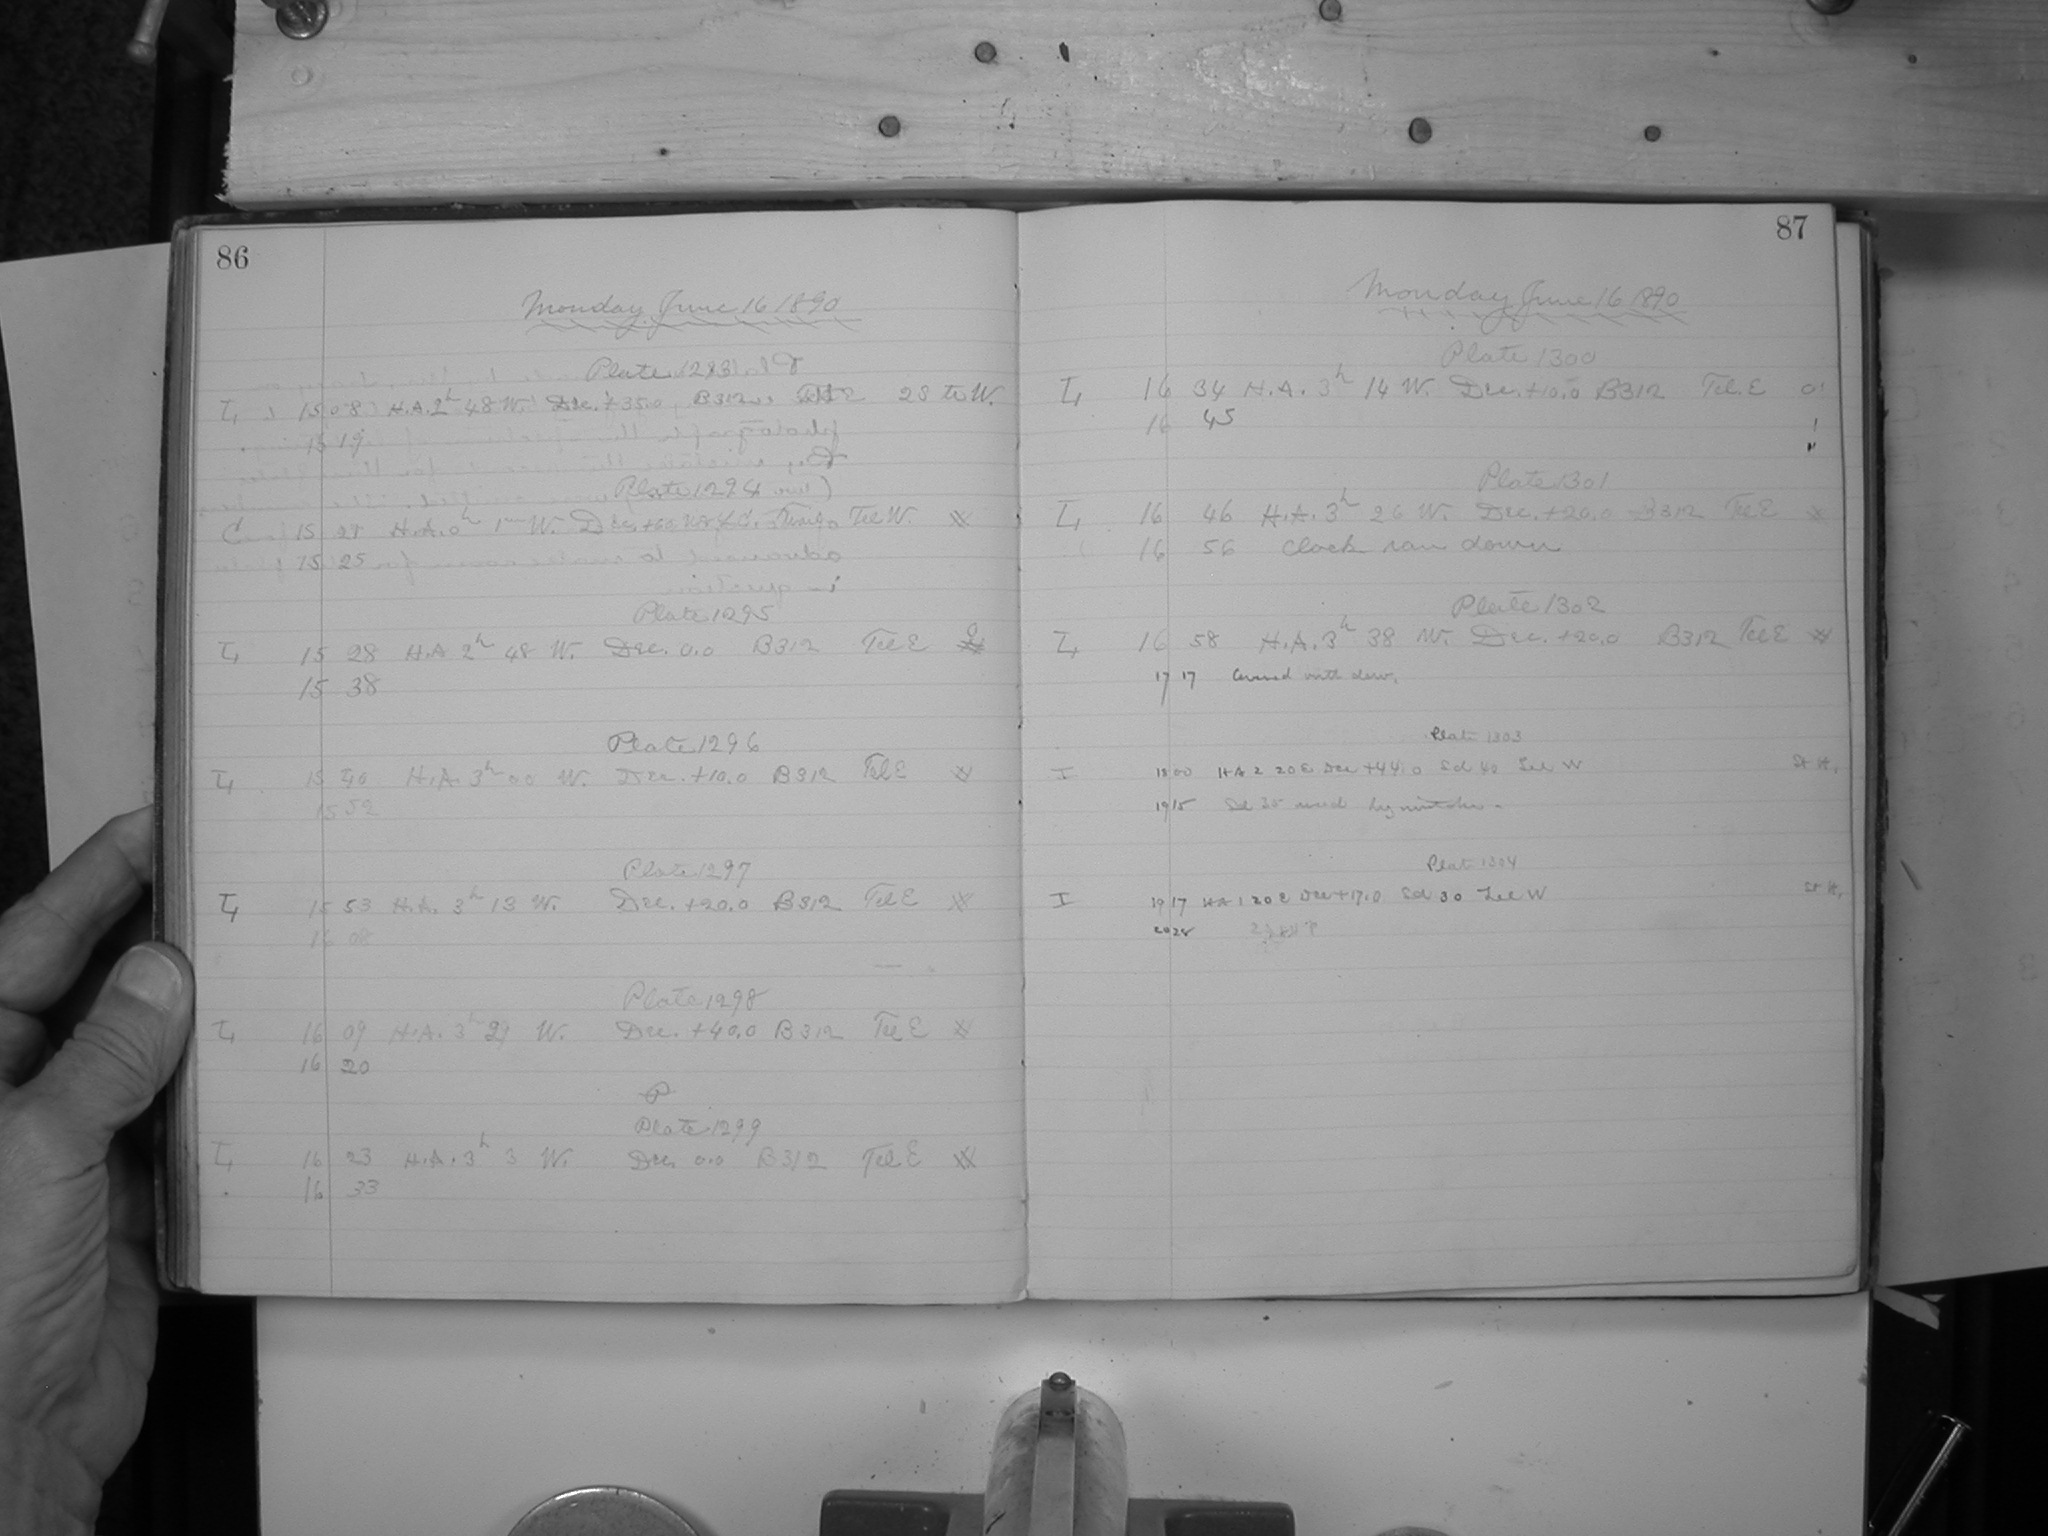 86
Monday June 16 1890
Plate 1293
I, 15 08 H.A. 2h 48 W. Dec. +35.0, B312 23 to W.
15 19
Plate 1294
C 15 21 H.A. 0h 1m W. Dec. +60 Tel W.
15 25
Plate 1295
I, 15 28 H.A 2h 48 W. Dec. 0.0 B312 Tel E
15 38
Plate 1296
I, 15 40 H.A. 3h 00 W. Dec. +10.0 B312 Tel E
15 52
Plate 1297
I, 15 53 H.A. 3h 13 W. Dec. +20.0 B312 Tel E
16 08
Plate 1298
I, 16 09 H.A. 3h 29 W. Dec. +40.0 B312 Tel E
16 20
P
Plate 1299
I, 16 23 H.A. 3h 3 W. Dec. 0.0 B312 Tel E
16 33
87
Monday June 16 1890
Plate 1300
I, 16 34 H.A. 3h 14 W. Dec. +10.0 B312 Tel. E
16 45
Plate 1301
I, 16 46 H.A. 3h 26 W. Dec. +20.0 B312 Tel E
16 56 Clock ran down
Plate 1302
I, 16 58 H.A. 3h 38 W. Dec. +20.0 B312 Tel E
17 17 Covered with dew.
Plate 1303
I 18 00 HA 2 20 E Dec +44.0 Sd 40 Tel W St H.
19 15 Sd 30 used by mistake.
Plate 1304
I 19 17 HA 1 20 E Dec +17.0 Sd 30 Tel W St H.
20 28